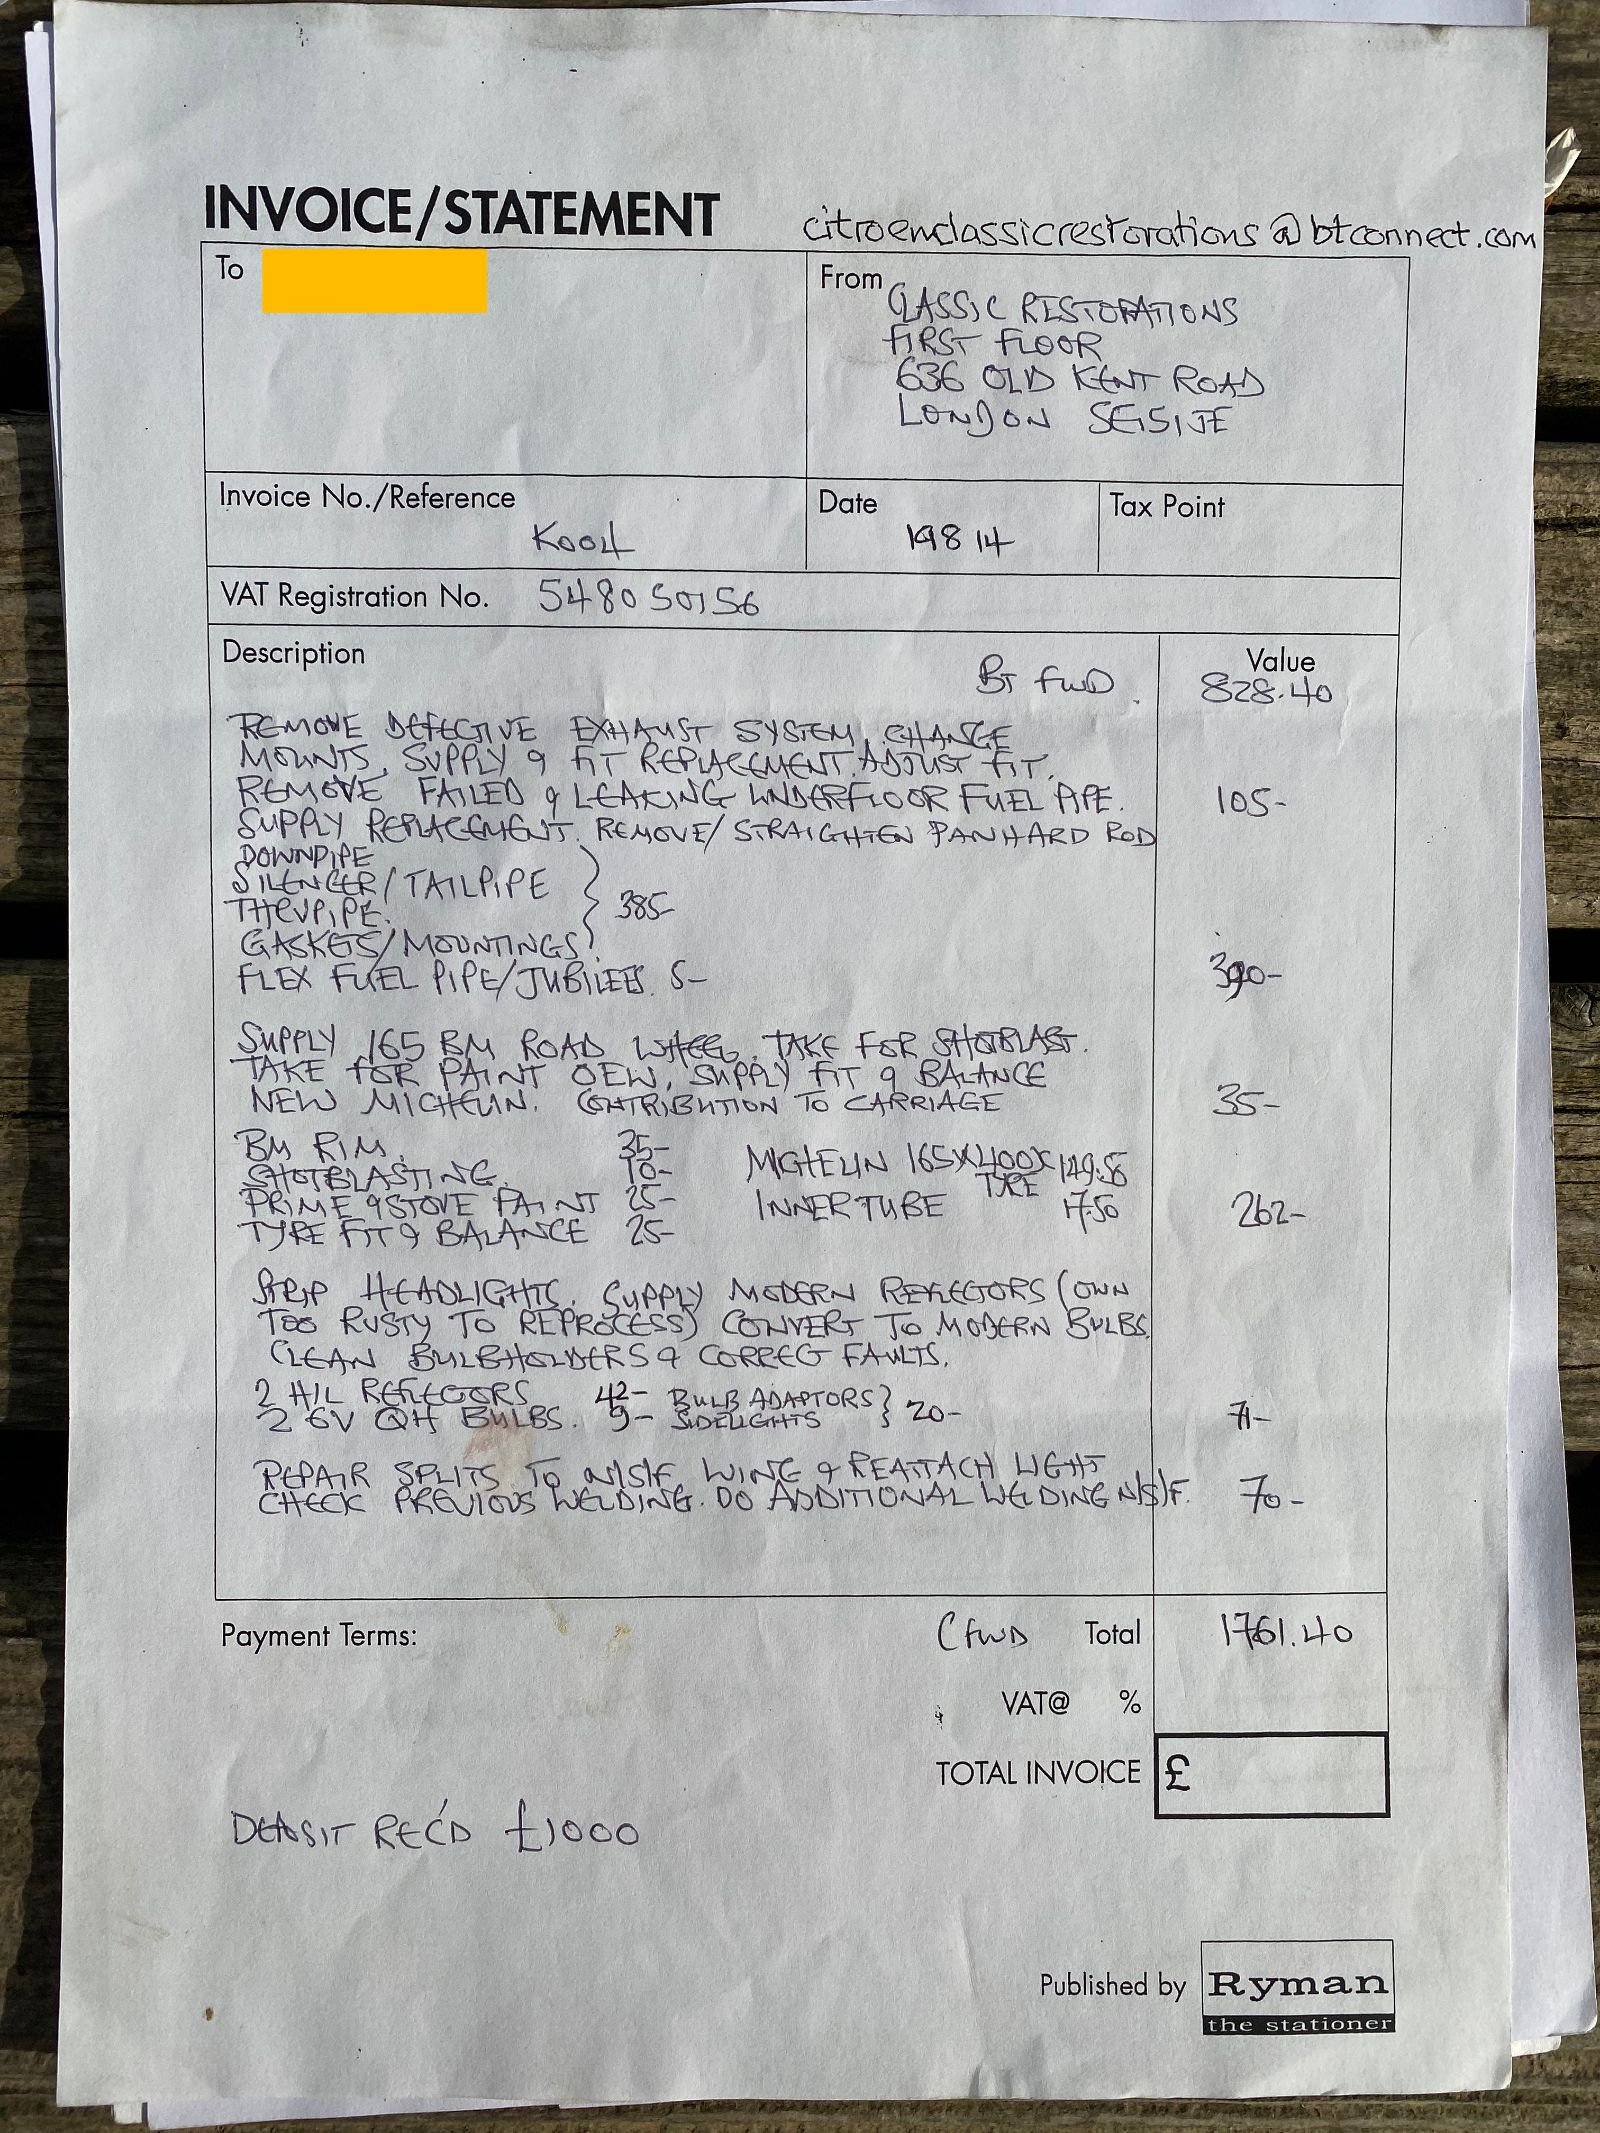 INVOICE/STATEMENT
citroenclassicrestorations@btconnect.com
To
From
CLASSIC RESTORATIONS
FIRST FLOOR
636 OLD KENT ROAD
LONDON SE15 1JE
Invoice No./Reference
K004
Date
19 8 14
Tax Point
VAT Registration No. 548050156
Description
Value
BT FWD. 828.40
REMOVE DEFECTIVE EXHAUST SYSTEM, CHANGE
MOUNTS, SUPPLY & FIT REPLACEMENT. ADJUST FIT.
REMOVE FAILED & LEAKING UNDERFLOOR FUEL PIPE. 105-
SUPPLY REPLACEMENT. REMOVE/STRAIGHTEN PANHARD ROD
DOWNPIPE
SILENCER/TAILPIPE
385-
GASKETS/MOUNTINGS
FLEX FUEL PIPE/JUBILEES. 5- 390-
SUPPLY 165 BM ROAD WHEEL. TAKE FOR SHOTBLAST.
TAKE FOR PAINT OEW, SUPPLY FIT & BALANCE
NEW MICHELIN. CONTRIBUTION TO CARRIAGE 35-
BM RIM. 35- MICHELIN 165X400X 149.56
SHOTBLASTING. 10- TYRE
PRIME & STOVE PAINT 25- INNERTUBE 17.50 262-
TYRE FIT & BALANCE 25-
STRIP HEADLIGHTS. SUPPLY MODERN REFLECTORS (OWN
TOO RUSTY TO REPROCESS) CONVERT TO MODERN BULBS.
CLEAN BULBHOLDERS & CORRECT FAULTS.
2 H/L REFLECTORS 42- BULB ADAPTORS
2 6V QH BULBS. 9- SIDELIGHTS } 20- 71-
REPAIR SPLITS TO N/S/F WING & REATTACH LIGHT
CHECK PREVIOUS WELDING. DO ADDITIONAL WELDING N/S/F. 70-
Payment Terms:
C FWD Total 1761.40
VAT@ %
TOTAL INVOICE £
DEPOSIT REC'D £1000
Published by Ryman
the stationer